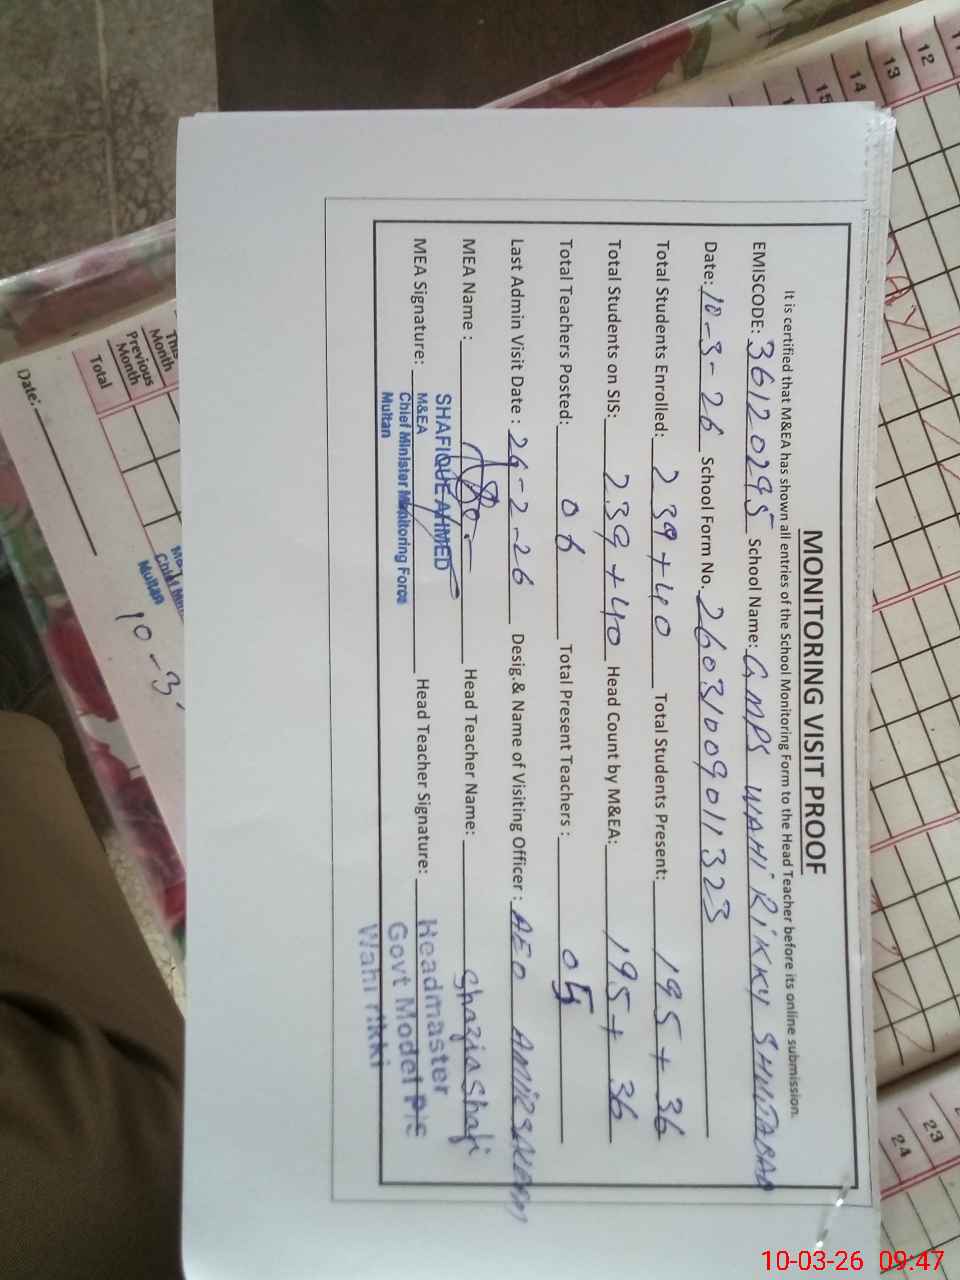 MONITORING VISIT PROOF
It is certified that M&EA has shown all entries of the School Monitoring Form to the Head Teacher before its online submission.
EMISCODE: 36120295 School Name: GMPS WAHI RIKKY SHUJABAD
Date: 10-3-26 School Form No. 2603100901 1323
Total Students Enrolled: 239+40 Total Students Present: 195+36
Total Students on SIS: 239+40 Head Count by M&EA: 195+36
Total Teachers Posted: 06 Total Present Teachers : 05
Last Admin Visit Date : 26-2-26 Desig.& Name of Visiting Officer : AEO AMIR
MEA Name : Head Teacher Name: Shazia Shafi
MEA Signature: Head Teacher Signature:
SHAFIQUE AHMED
M&EA
Chief Minister Monitoring Force
Multan
Headmaster
Govt Model P/S
Wahi rikki
This Month
Previous Month
Total
Date:
Multan
10-3
12
13
14
15
23
24
10-03-26 09:47